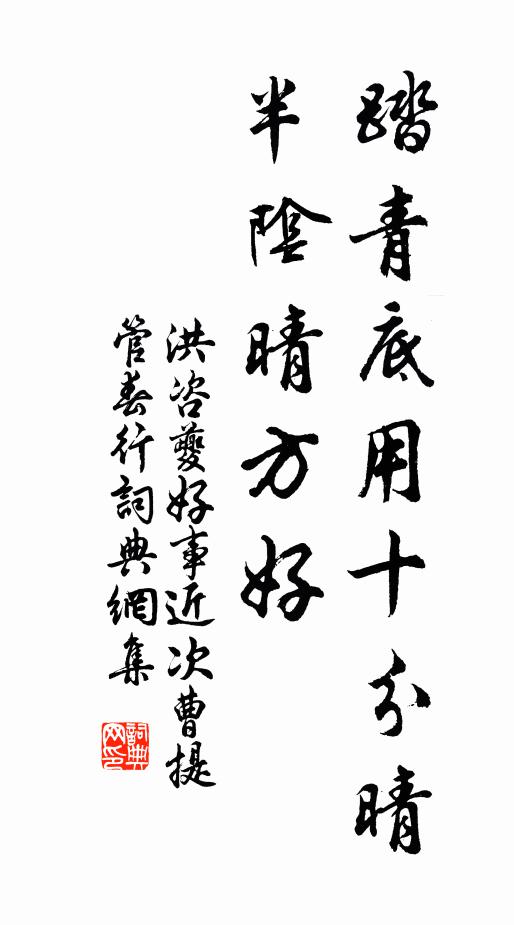 踏青底用十分晴
半陰晴方好
洪咨夔好事近次曹提
管春行詞典網集
詞典
网印